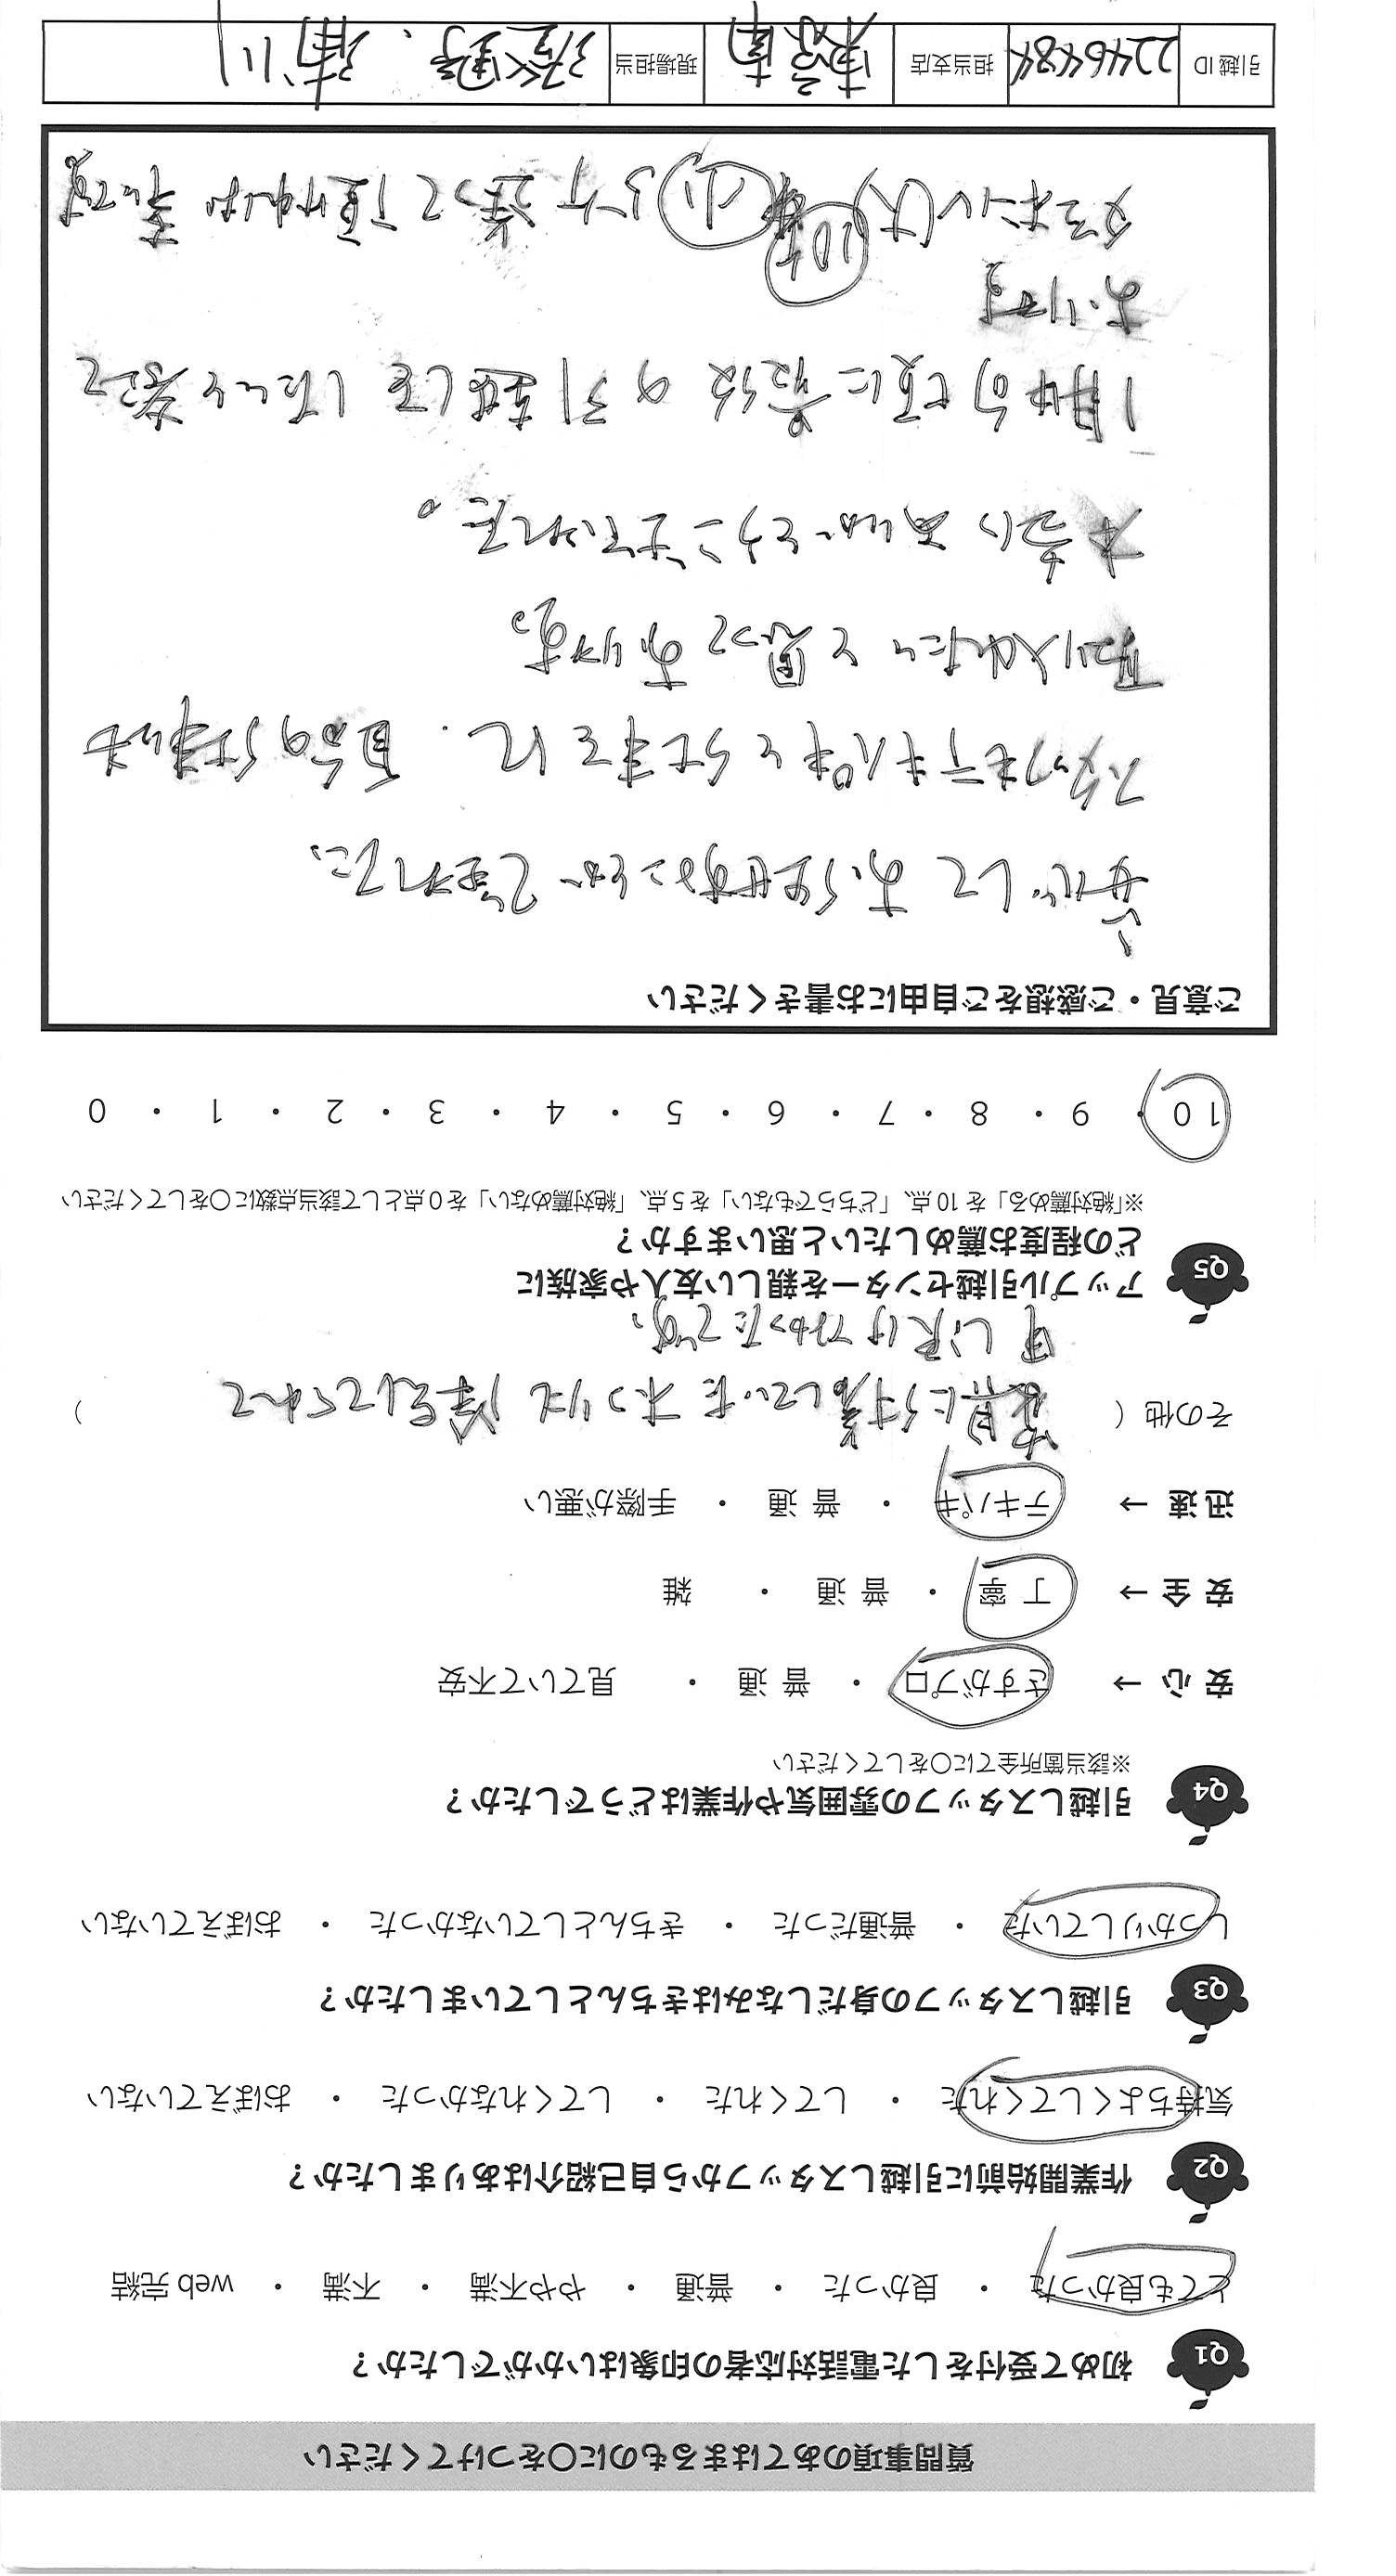 質問事項のあてはまるものに○をつけてください
Q1 初めて受付をした電話対応者の印象はいかがでしたか？
とても良かった ・ 良かった ・ 普通 ・ やや不満 ・ 不満 ・ web 完結
Q2 作業開始前に引越しスタッフから自己紹介はありましたか？
気持ちよくしてくれた ・ してくれた ・ してくれなかった ・ おぼえていない
Q3 引越しスタッフの身だしなみはきちんとしていましたか？
しっかりしていた ・ 普通だった ・ きちんとしていなかった ・ おぼえていない
Q4 引越しスタッフの雰囲気や作業はどうでしたか？
※該当箇所全てに○をしてください
安 心 → さすがプロ ・ 普 通 ・ 見ていて不安
安 全 → 丁 寧 ・ 普 通 ・ 雑
迅 速 → テキパキ ・ 普 通 ・ 手際が悪い
その他 ( 家具に付着していたホコリも 掃除してくれて )
申し訳けなかったです。
Q5 アップル引越センターを親しい友人や家族に
どの程度お薦めしたいと思いますか？
※「絶対薦める」を 10 点、「どちらでもない」を 5 点、「絶対薦めない」を 0 点として該当点数に○をしてください
10 ・ 9 ・ 8 ・ 7 ・ 6 ・ 5 ・ 4 ・ 3 ・ 2 ・ 1 ・ 0
ご意見・ご感想をご自由にお書きください
安心して お任せすることが できました、
スタッフもテキパキと仕事をこ 自分の仕事にも
取り入れたいと思っております。
本当に ありがとうございました。
1月中旬頃に最後の引越しを したいと考えて
おります
ダンボール(大)10 小 5
引越 ID 2246484 担当支店 東京南 現場担当